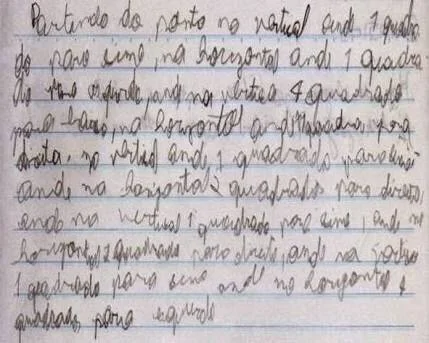 Partindo do ponto na vertical ande 1 quadra
do para sima, na horizontal ande 1 quadra
do para esquerda, ande na vertica 4 quadrado
para baixo, na horizontal ande quadrados para
direita, na vertical ande 1 quadrado para sima
ande na horizontal 2 quadrados para direita,
ande na vertical 1 quadrado para sima, ande na
horizontal 2 quadrado para direita, ande na vertica
1 quadrado para sima ande na horizontal 4
quadrados para esquerda